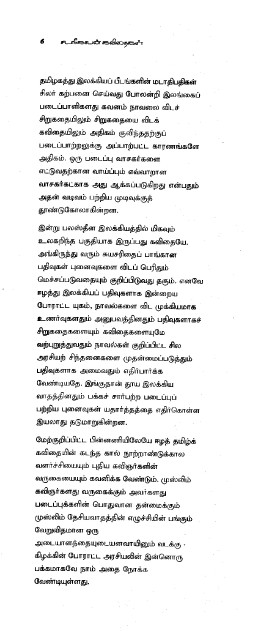 6 சடலிகைன் கவிதைகள்
தமிழகத்து இலக்கியப் பீடங்களின் மடாதிபதிகள்
சிலர் கற்பனை செய்வது போலன்றி இலங்கைப்
படைப்பாளிகளது கவனம் நாவலை விடச்
சிறுகதையிலும் சிறுகதையை விடக்
கவிதையிலும் அதிகம் குவிந்ததற்குப்
படைப்பாற்றலுக்கு அப்பாற்பட்ட காரணங்களே
அதிகம். ஒரு படைப்பு வாசகர்களை
எட்டுவதற்கான வாய்ப்பும் எவ்வாறான
வாசகர்கட்காக அது ஆக்கப்படுகிறது என்பதும்
அதன் வடிவம் பற்றிய முடிவுக்குத்
தூண்டுகோலாகின்றன.
இன்று பலஸ்தீன இலக்கியத்தில் மிகவும்
உலகறிந்த பகுதியாக இருப்பது கவிதையே.
அங்கிருந்து வரும் சுயசரிதைப் பாங்கான
பதிவுகள் புனைவுகளை விடப் பெரிதும்
மெச்சப்படுவதையும் குறிப்பிடுவது தகும். எனவே
ஈழத்து இலக்கியப் பதிவுகளாக இன்றைய
போராட்ட யுகம், நாவல்களை விட முக்கியமாக
உணர்வுகளதும் அனுபவத்தினதும் பதிவுகளாகச்
சிறுகதைகளையும் கவிதைகளையுமே
வற்புறுத்துவதும் நாவல்கள் குறிப்பிட்ட சில
அரசியற் சிந்தனைகளை முதன்மைப்படுத்தும்
பதிவுகளாக அமைவதும் எதிர்பார்க்க
வேண்டியதே. இங்குதான் தூய இலக்கிய
வாதத்தினதும் பக்கச் சார்பற்ற படைப்புப்
பற்றிய புனைவுகள் யதார்த்தத்தை எதிர்கொள்ள
இயலாது தடுமாறுகின்றன.
மேற்குறிப்பிட்ட பின்னணியிலேயே ஈழத் தமிழ்க்
கவிதையின் கடந்த கால் நூற்றாண்டுக்கால
வளர்ச்சியையும் புதிய கவிஞர்களின்
வருகையையும் கவனிக்க வேண்டும். முஸ்லிம்
கவிஞர்களது வருகைக்கும் அவர்களது
படைப்புக்களின் பொதுவான தன்மைக்கும்
முஸ்லிம் தேசியவாதத்தின் எழுச்சியின் பங்கும்
வேறுவிதமான ஒரு
அடையாளத்தையுடையனவாயினும் வடக்கு -
கிழக்கின் போராட்ட அரசியலின் இன்னொரு
பக்கமாகவே நாம் அதை நோக்க
வேண்டியுள்ளது.